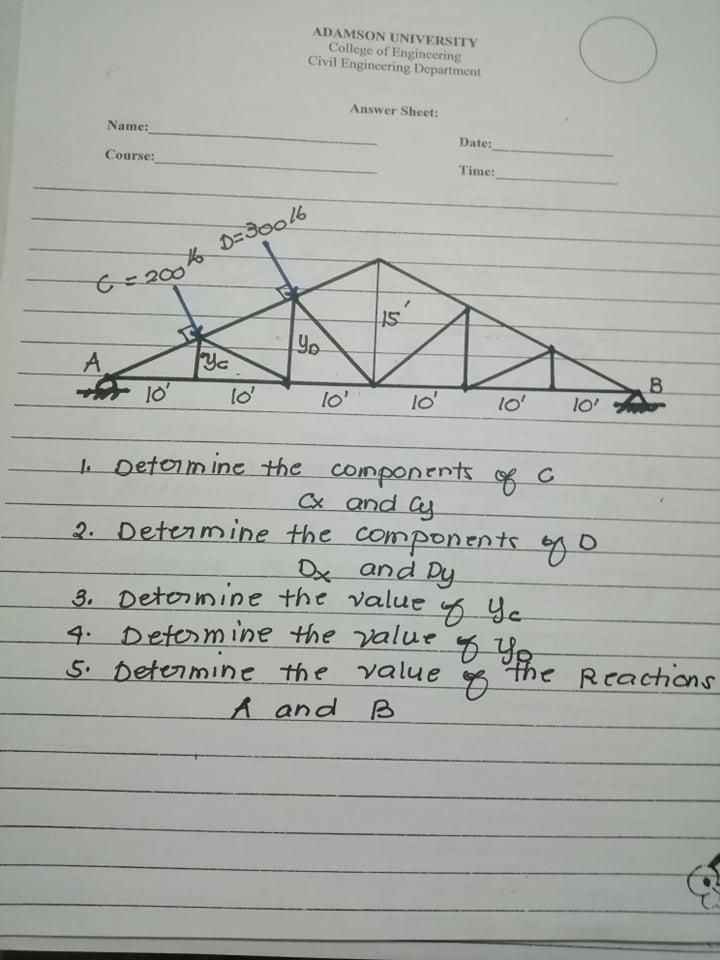 ADAMSON UNIVERSITY
College of Engineering
Civil Engineering Department
Answer Sheet:
Name:
Date:
Course:
Time:
D=300 lb
C = 200 lb
15'
yD
yc
A
B
10' 10' 10' 10' 10' 10'
1. Determine the components of C
Cx and Cy
2. Determine the components of D
Dx and Dy
3. Determine the value of yc
4. Determine the value of yD
5. Determine the value of the Reactions
A and B